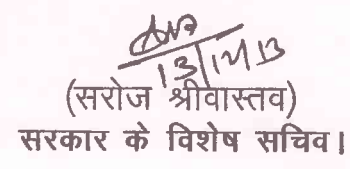 13/12/13
(सरोज श्रीवास्तव)
सरकार के विशेष सचिव।